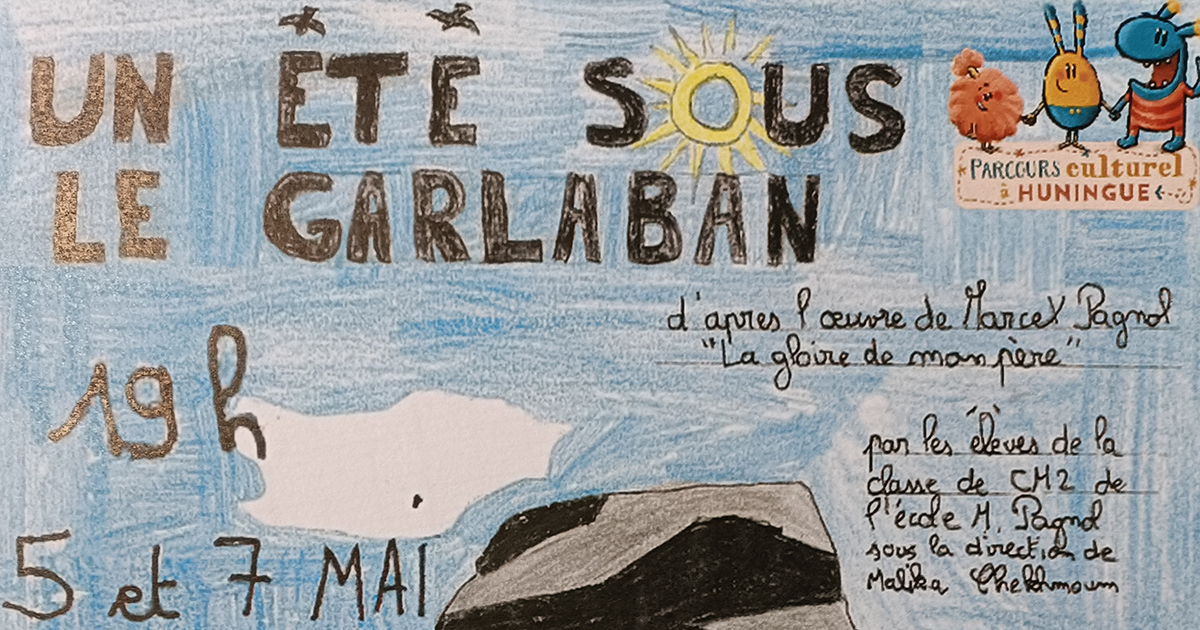 UN ÉTÉ SOUS
LE GARLABAN
PARCOURS culturel
à HUNINGUE
d'après l'œuvre de Marcel Pagnol
"La gloire de mon père"
19 h
par les élèves de la
classe de CM2 de
l'école M. Pagnol
sous la direction de
Malika Chekhmoum
5 et 7 MAI